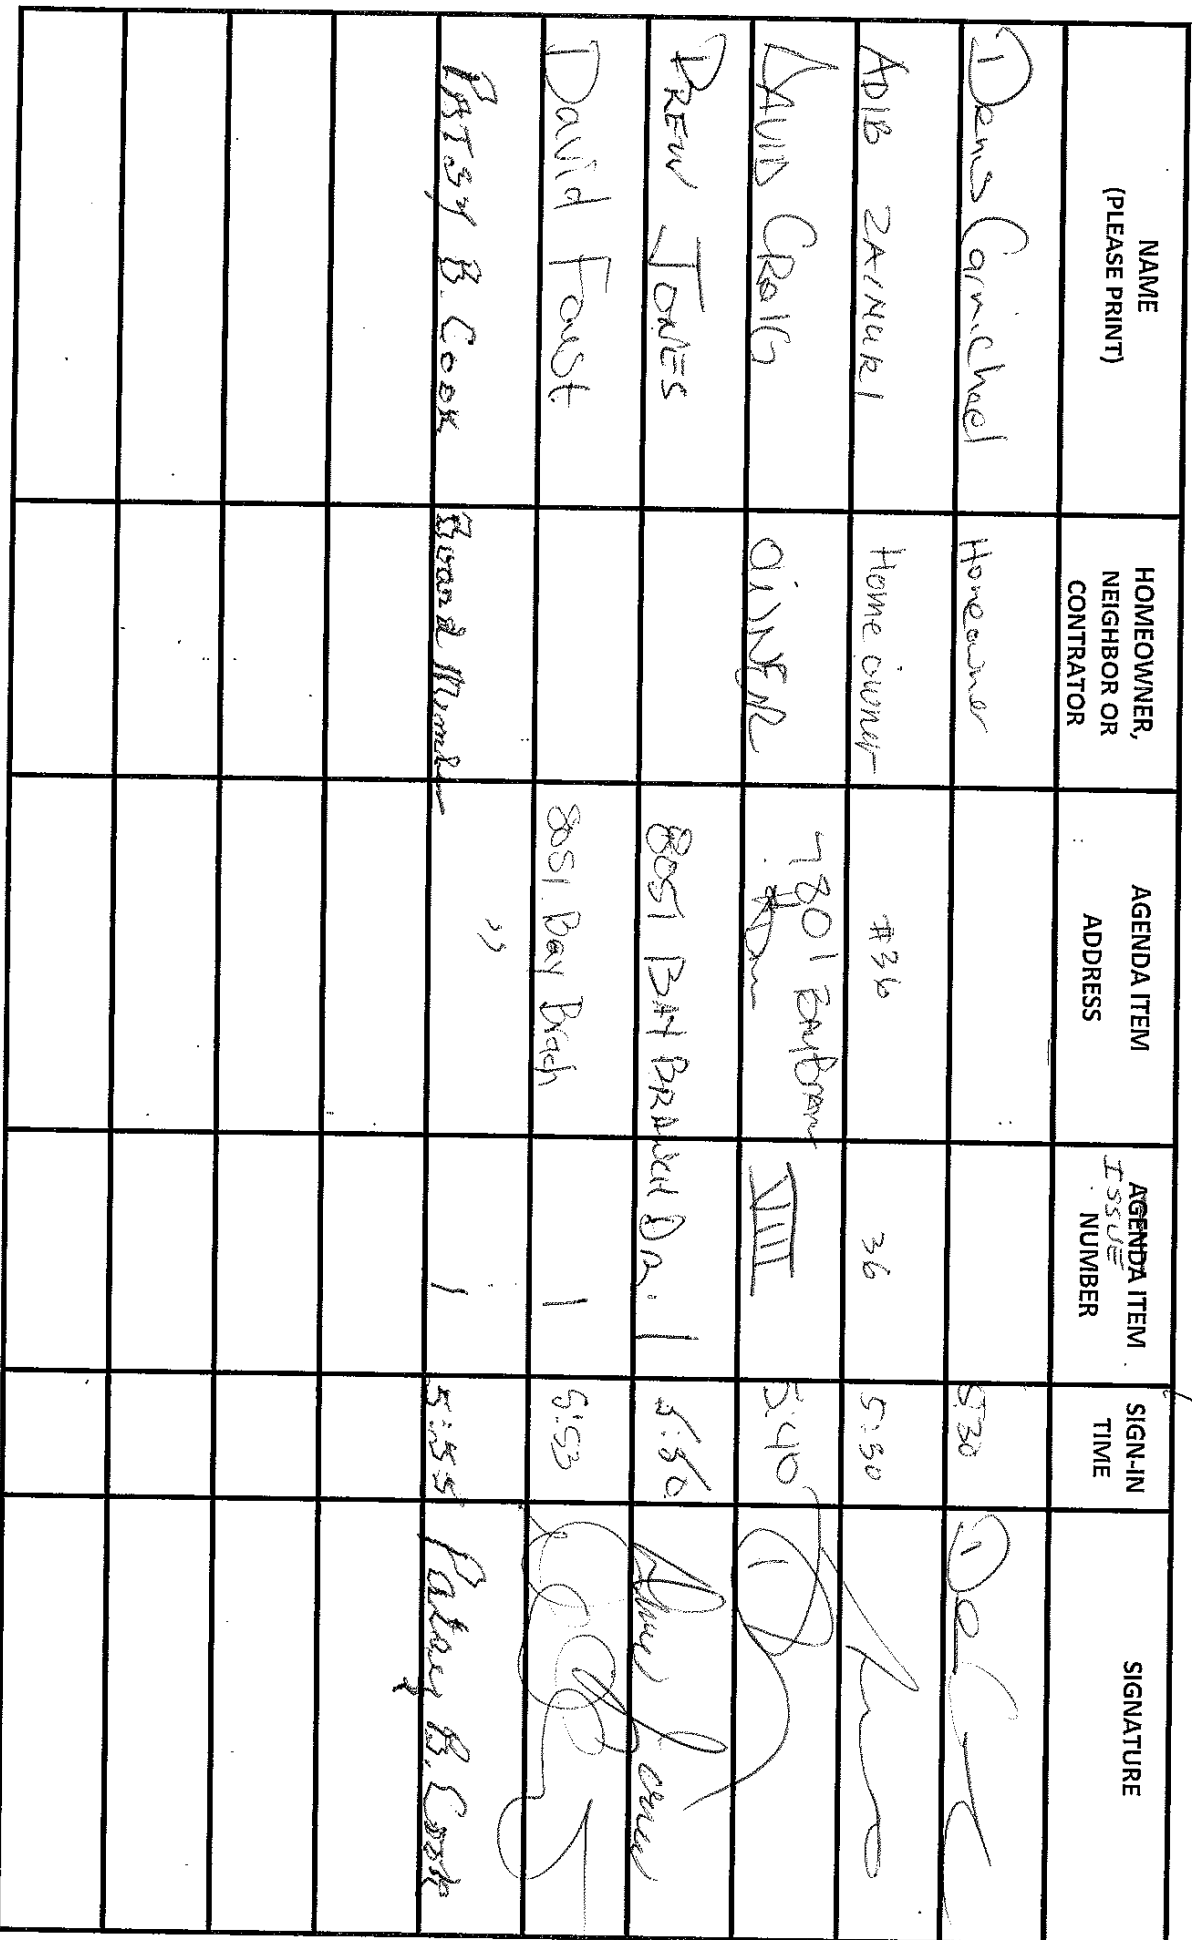 NAME
(PLEASE PRINT)
HOMEOWNER,
NEIGHBOR OR
CONTRATOR
AGENDA ITEM
ADDRESS
AGENDA ITEM
ISSUE
NUMBER
SIGN-IN
TIME
SIGNATURE
Denis Carmichael Homeowner 5:30
ADIB ZAINUR1 Home owner #36 36 5:30
DAVID CRAIG OWNER 7801 VIII 5:40
DREW JONES 8051 BAY BRANCH DR. 1 5:50 Drew Jones
David Foust 8051 Bay Brach 1 5:53
PATSY B. COOK Board Member " 1 5:55 Patsy B. Cook